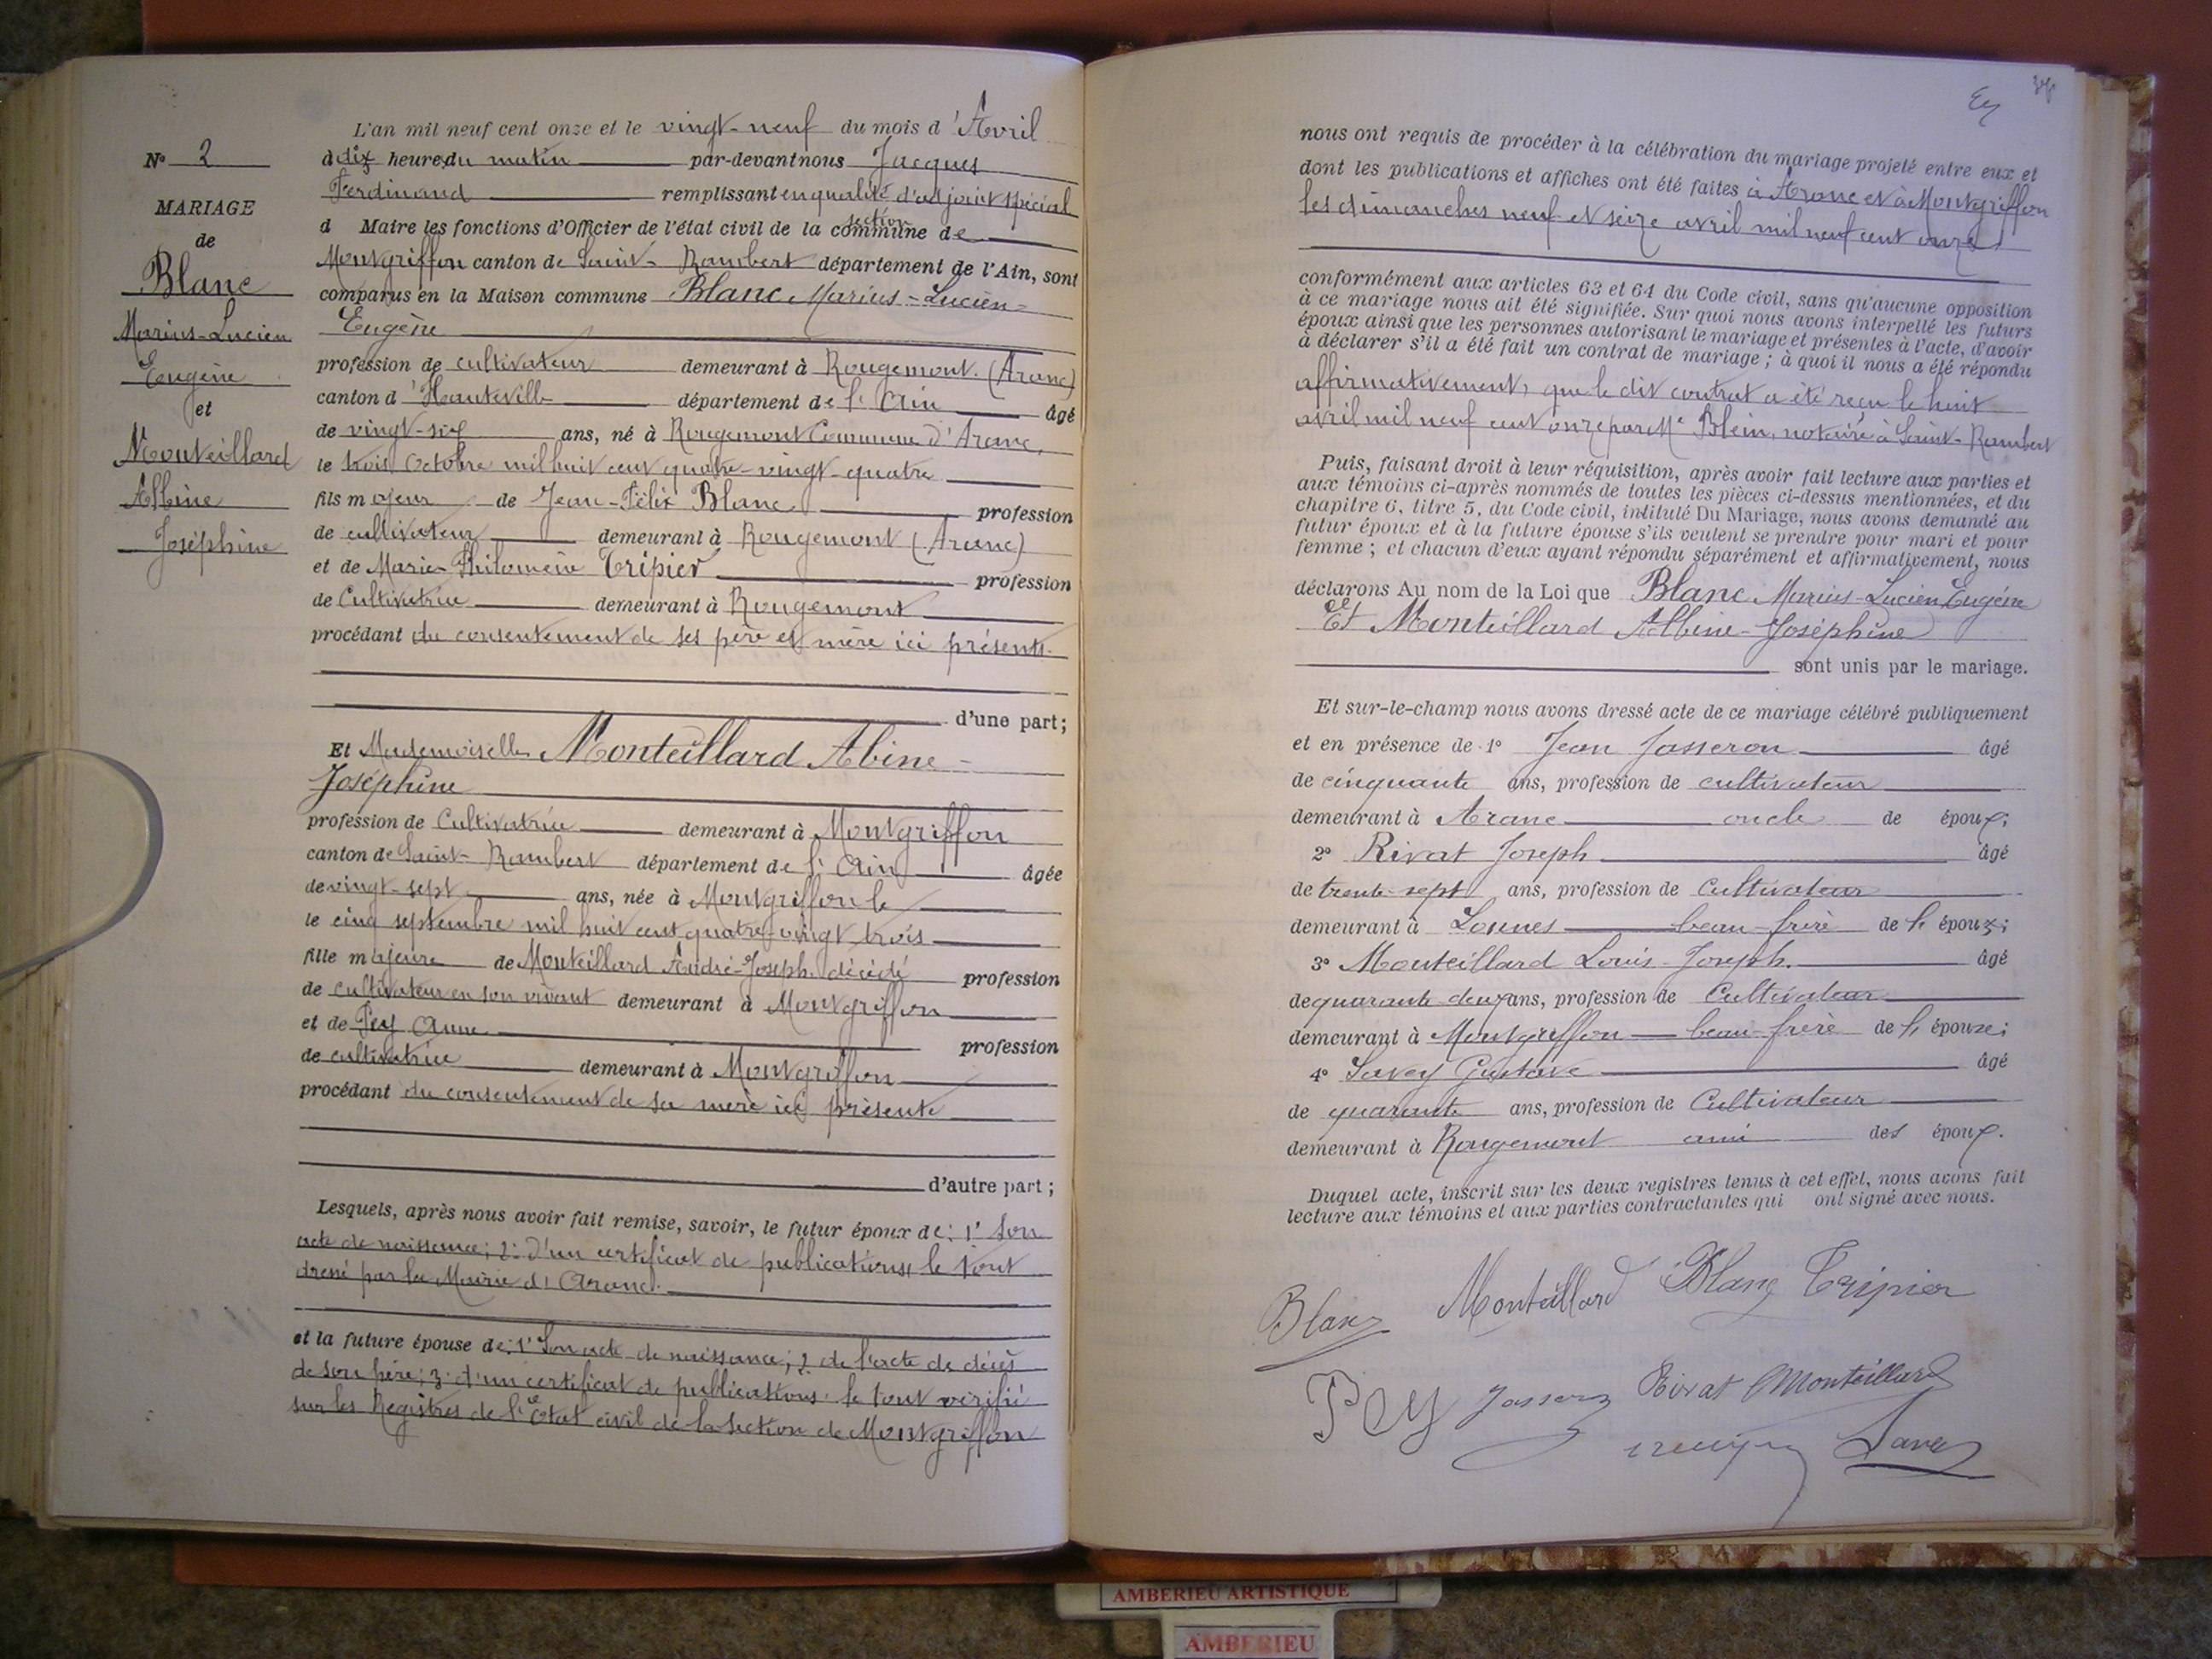 L'an mil neuf cent onze et le vingt-neuf du mois d'Avril
à dix heures du matin par-devant nous Jacques
Ferdinand remplissant en qualité d'adjoint spécial
d Maire les fonctions d'Officier de l'état civil de la commune section de
Montgriffon canton de Saint-Rambert département de l'Ain, sont
comparus en la Maison commune Blanc Marius-Lucien-
Eugène
profession de cultivateur demeurant à Rougemont (Aranc)
canton d'Hauteville département de l'Ain âgé
de vingt-six ans, né à Rougemont Commune d'Aranc,
le trois Octobre mil huit cent quatre-vingt-quatre
fils majeur de Jean-Félix Blanc profession
de cultivateur demeurant à Rougemont (Aranc)
et de Marie-Philomène Tripier profession
de Cultivatrice demeurant à Rougemont
procédant du consentement de ses père et mère ici présents
d'une part;
Et Mademoiselle Monteillard Abine-
Joséphine
profession de Cultivatrice demeurant à Montgriffon
canton de Saint-Rambert département de l'Ain âgée
de vingt-sept ans, née à Montgriffon le
le cinq septembre mil huit cent quatre-vingt trois
fille majeure de Monteillard André-Joseph décédé profession
de cultivateur en son vivant demeurant à Montgriffon
et de Pey Anne profession
de cultivatrice demeurant à Montgriffon
procédant du consentement de sa mère ici présente
d'autre part;
Lesquels, après nous avoir fait remise, savoir, le futur époux de: 1° Son
acte de naissance; 2° D'un certificat de publications, le tout
dressé par la Mairie d'Aranc.
et la future épouse de: 1° Son acte de naissance; 2° de l'acte de décès
de son père; 3° d'un certificat de publications: le tout vérifié
sur les Registres de l'Etat civil de la section de Montgriffon
N° 2
MARIAGE
de
Blanc
Marius-Lucien
Eugène
et
Monteillard
Albine
Joséphine
nous ont requis de procéder à la célébration du mariage projeté entre eux et
dont les publications et affiches ont été faites à Aranc et à Montgriffon
les dimanches neuf et seize avril mil neuf cent onze
conformément aux articles 63 et 64 du Code civil, sans qu'aucune opposition
à ce mariage nous ait été signifiée. Sur quoi nous avons interpellé les futurs
époux ainsi que les personnes autorisant le mariage et présentes à l'acte, d'avoir
à déclarer s'il a été fait un contrat de mariage; à quoi il nous a été répondu
affirmativement, que le dit contrat a été reçu le huit
avril mil neuf cent onze par Me Blein, notaire à Saint-Rambert
Puis, faisant droit à leur réquisition, après avoir fait lecture aux parties et
aux témoins ci-après nommés de toutes les pièces ci-dessus mentionnées, et du
chapitre 6, titre 5, du Code civil, intitulé Du Mariage, nous avons demandé au
futur époux et à la future épouse s'ils veulent se prendre pour mari et pour
femme; et chacun d'eux ayant répondu séparément et affirmativement, nous
déclarons Au nom de la Loi que Blanc Marius-Lucien Eugène
Et Monteillard Albine-Joséphine
sont unis par le mariage.
Et sur-le-champ nous avons dressé acte de ce mariage célébré publiquement
et en présence de 1° Jean Jasseron âgé
de cinquante ans, profession de cultivateur
demeurant à Aranc oncle de époux;
2° Rivat Joseph âgé
de trente-sept ans, profession de Cultivateur
demeurant à beau-frère de l' époux;
3° Monteillard Louis-Joseph. âgé
de quarante-deux ans, profession de Cultivateur
demeurant à Montgriffon beau-frère de l' épouse;
4° Savey Gustave âgé
de quarante ans, profession de Cultivateur
demeurant à Rougemont ami des époux.
Duquel acte, inscrit sur les deux registres tenus à cet effet, nous avons fait
lecture aux témoins et aux parties contractantes qui ont signé avec nous.
Blanc Monteillard Blanc Tripier
Pey Jasseron Rivat Monteillard
Savey
AMBERIEU ARTISTIQUE
AMBERIEU